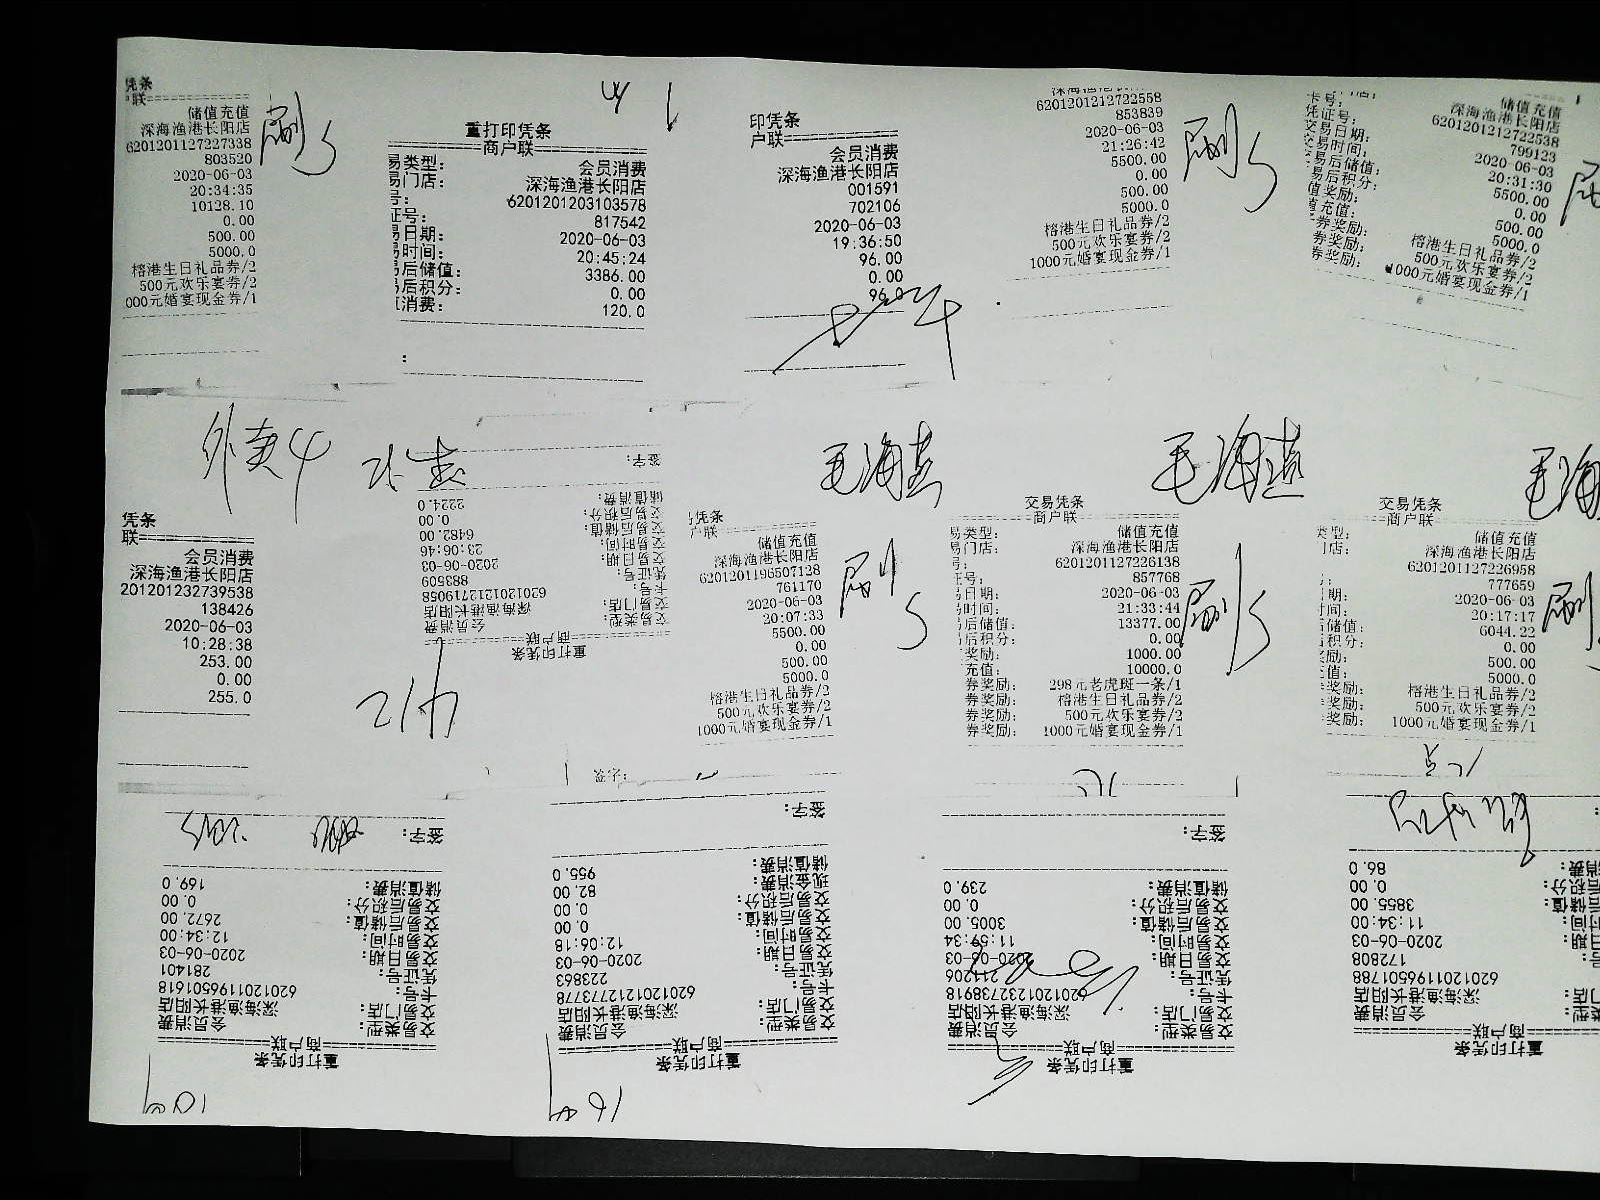 凭条
联
储值充值
深海渔港长阳店
6201201127227338
803520
2020-06-03
20:34:35
10128.10
0.00
500.00
5000.0
榕港生日礼品券/2
500元欢乐宴券/2
000元婚宴现金券/1
刷5
重打印凭条
商户联
易类型: 会员消费
易门店: 深海渔港长阳店
号: 6201201203103578
证号: 817542
易日期: 2020-06-03
易时间: 20:45:24
易后储值: 3386.00
易后积分: 0.00
消费: 120.0
印凭条
户联
会员消费
深海渔港长阳店
001591
702106
2020-06-03
19:36:50
96.00
0.00
96.0
6201201212722558
853839
2020-06-03
21:26:42
5500.00
0.00
500.00
5000.0
榕港生日礼品券/2
500元欢乐宴券/2
1000元婚宴现金券/1
刷5
储值充值
深海渔港长阳店
卡号: 6201201212722538
凭证号: 799123
交易日期: 2020-06-03
交易时间: 20:31:30
易后储值: 5500.00
易后积分: 0.00
值奖励: 500.00
值充值: 5000.0
券奖励: 榕港生日礼品券/2
券奖励: 500元欢乐宴券/2
券奖励: 1000元婚宴现金券/1
外卖4
凭条
联
会员消费
深海渔港长阳店
201201232739538
138426
2020-06-03
10:28:38
253.00
0.00
255.0
重打印凭条
商户联
交易类型: 会员消费
交易门店: 深海渔港长阳店
卡号: 6201201212719058
凭证号: 883509
交易日期: 2020-06-03
交易时间: 23:06:46
交易后储值: 6482.00
交易后积分: 0.00
储值消费: 2224.0
签字:
毛海燕
凭条
户联
储值充值
深海渔港长阳店
6201201196507128
761170
2020-06-03
20:07:33
5500.00
0.00
500.00
5000.0
榕港生日礼品券/2
500元欢乐宴券/2
1000元婚宴现金券/1
刷5
毛海燕
交易凭条
商户联
易类型: 储值充值
易门店: 深海渔港长阳店
号: 6201201127226138
证号: 857768
易日期: 2020-06-03
易时间: 21:33:44
后储值: 13377.00
后积分: 0.00
奖励: 1000.00
充值: 10000.0
券奖励: 298元老虎斑一条/1
券奖励: 榕港生日礼品券/2
券奖励: 500元欢乐宴券/2
券奖励: 1000元婚宴现金券/1
刷5
毛海
交易凭条
商户联
类型: 储值充值
门店: 深海渔港长阳店
6201201127226958
777659
期: 2020-06-03
时间: 20:17:17
储值: 6044.22
积分: 0.00
奖励: 500.00
值: 5000.0
券奖励: 榕港生日礼品券/2
券奖励: 500元欢乐宴券/2
券奖励: 1000元婚宴现金券/1
刷
重打印凭条
商户联
交易类型: 会员消费
交易门店: 深海渔港长阳店
卡号: 6201201196501618
凭证号: 281401
交易日期: 2020-06-03
交易时间: 12:34:00
交易后储值: 2672.00
交易后积分: 0.00
储值消费: 169.0
签字:
重打印凭条
商户联
交易类型: 会员消费
交易门店: 深海渔港长阳店
卡号: 6201201212773778
凭证号: 223863
交易日期: 2020-06-03
交易时间: 12:06:18
交易后储值: 0.00
交易后积分: 0.00
现金消费: 82.00
储值消费: 955.0
签字:
重打印凭条
商户联
交易类型: 会员消费
交易门店: 深海渔港长阳店
卡号: 6201201232738918
凭证号: 211206
交易日期: 2020-06-03
交易时间: 11:59:34
交易后储值: 3005.00
交易后积分: 0.00
储值消费: 239.0
签字:
重打印凭条
商户联
会员消费
深海渔港长阳店
6201201196501788
172808
2020-06-03
11:34:00
3855.00
0.00
86.0
签字: